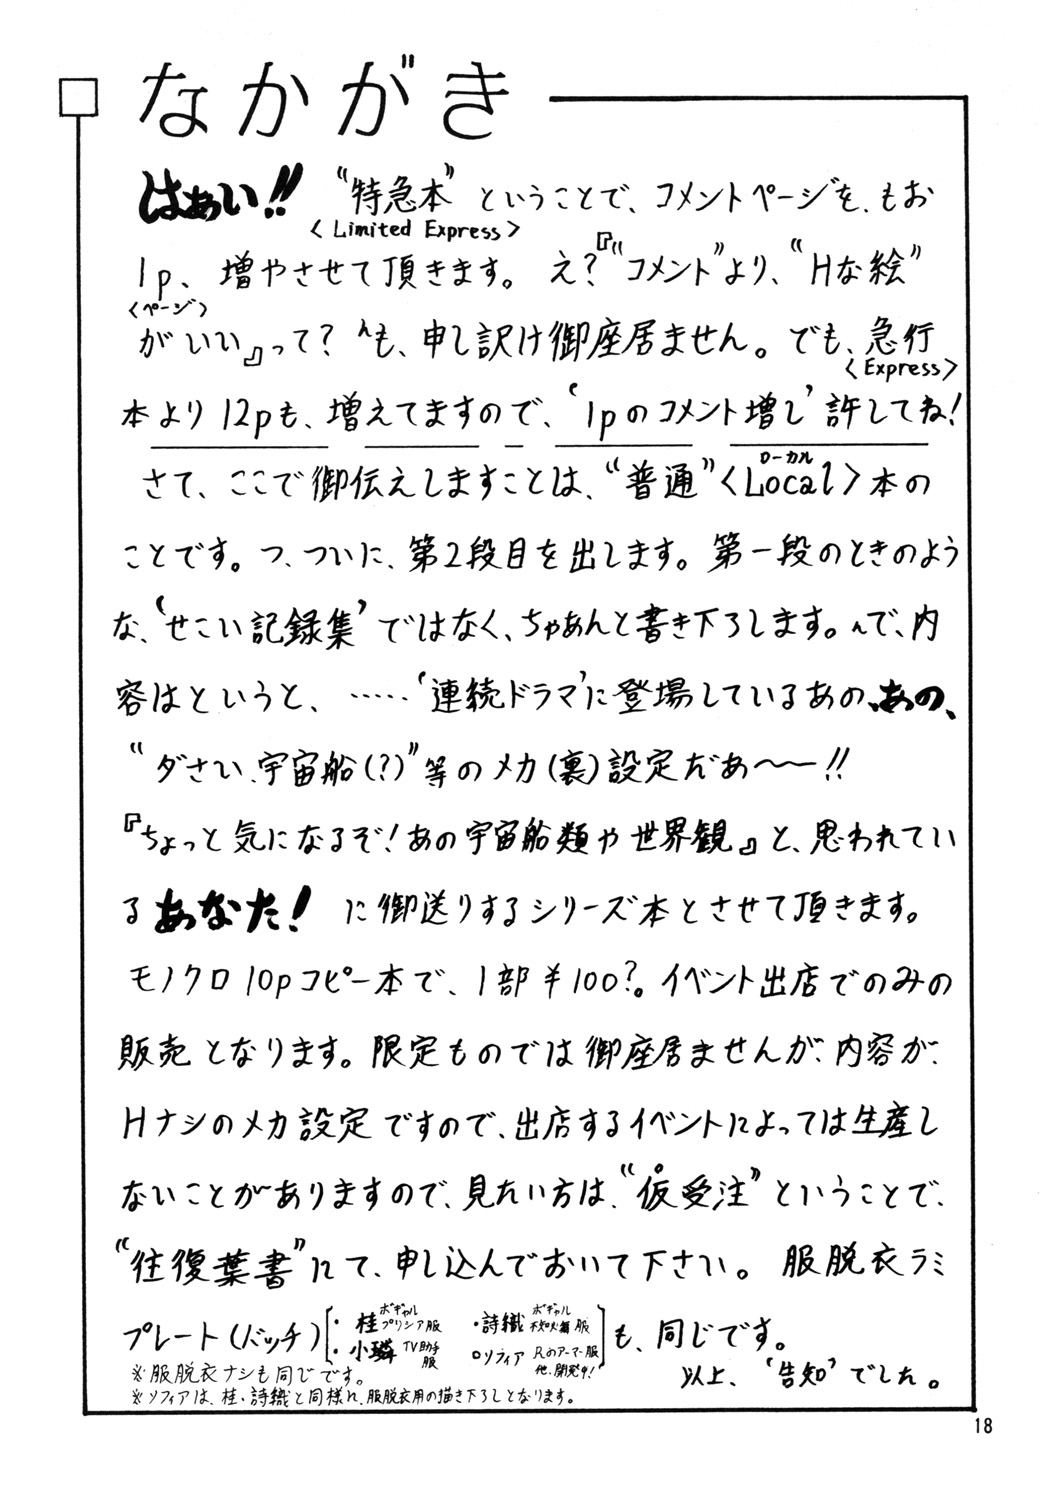 なかがき
はぁい!! “特急本”ということで、コメントページを、もお
〈Limited Express〉
1p、増やさせて頂きます。え?『“コメント”より、“Hな絵”
〈ページ〉
がいい』って? んも、申し訳け御座居ません。でも、急行
〈Express〉
本より12pも、増えてますので、‘1pのコメント増し’許してね!
さて、ここで御伝えしますことは、“普通”〈Local〉本の
ローカル
ことです。つ、ついに、第2段目を出します。第一段のときのよう
な、‘せこい記録集’ではなく、ちゃあんと書き下ろします。んで、内
容はというと、……‘連続ドラマ’に登場しているあの、あの、
“ダさい、宇宙船(?)”等のメカ(裏)設定だあ〜〜!!
『ちょっと気になるぞ!あの宇宙船類や世界観』と、思われてい
るあなた! に御送りするシリーズ本とさせて頂きます。
モノクロ10pコピー本で、1部¥100?。イベント出店でのみの
販売となります。限定ものでは御座居ませんが、内容が、
Hナシのメカ設定ですので、出店するイベントによっては生産し
ないことがありますので、見たい方は、“仮受注”ということで、
“往復葉書”にて、申し込んでおいて下さい。服脱衣ラミ
プレート(バッチ)[・桂 ボギャル プリシア服 ・詩織 ボギャル 服
・小璘 TV助手服 ○ソフィア Rのアーマー服 他、開発中!]も、同じです。
※服脱衣ナシも同じです。
以上、‘告知’でした。
※ソフィアは、桂・詩織と同様に、服脱衣用の描き下ろしとなります。
18